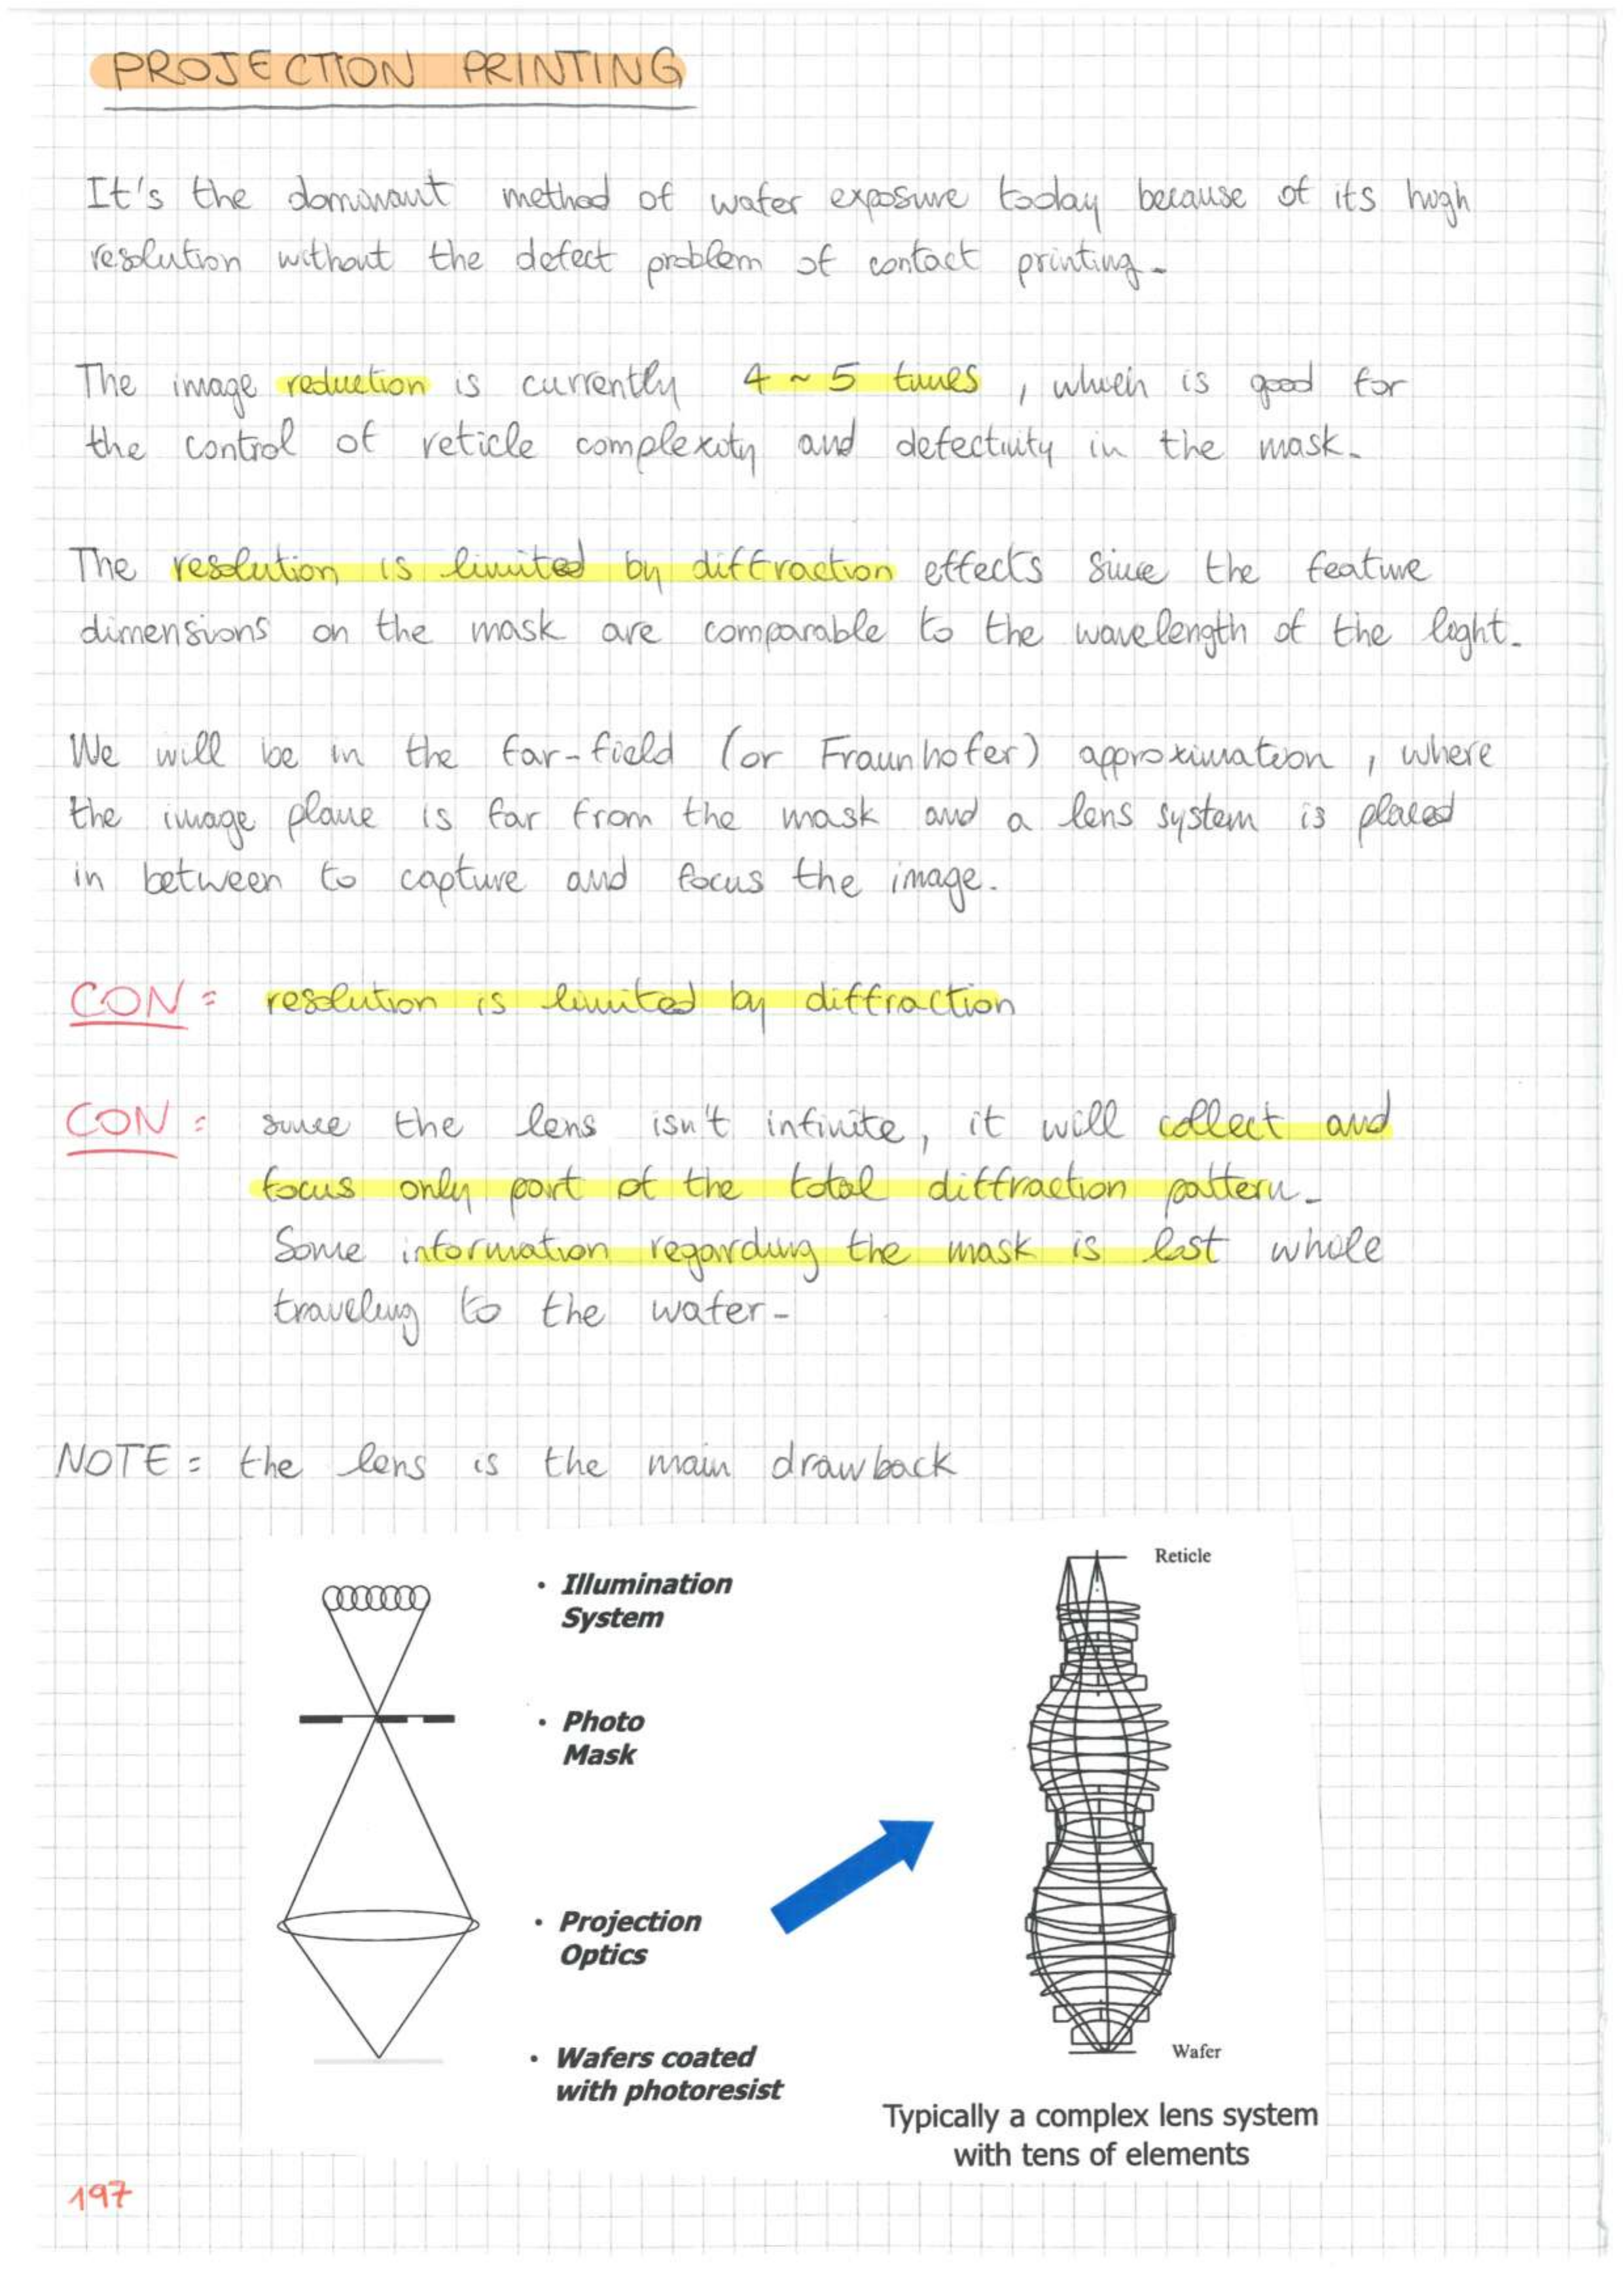 PROJECTION PRINTING
It's the dominant method of wafer exposure today because of its high
resolution without the defect problem of contact printing.
The image reduction is currently 4 ~ 5 times, which is good for
the control of reticle complexity and defectivity in the mask.
The resolution is limited by diffraction effects since the feature
dimensions on the mask are comparable to the wavelength of the light.
We will be in the far-field (or Fraunhofer) approximation, where
the image plane is far from the mask and a lens system is placed
in between to capture and focus the image.
CON = resolution is limited by diffraction
CON = since the lens isn't infinite, it will collect and
focus only part of the total diffraction pattern.
Some information regarding the mask is lost while
traveling to the wafer.
NOTE = the lens is the main drawback
Reticle
• Illumination
System
• Photo
Mask
• Projection
Optics
• Wafers coated
with photoresist
Wafer
Typically a complex lens system
with tens of elements
197